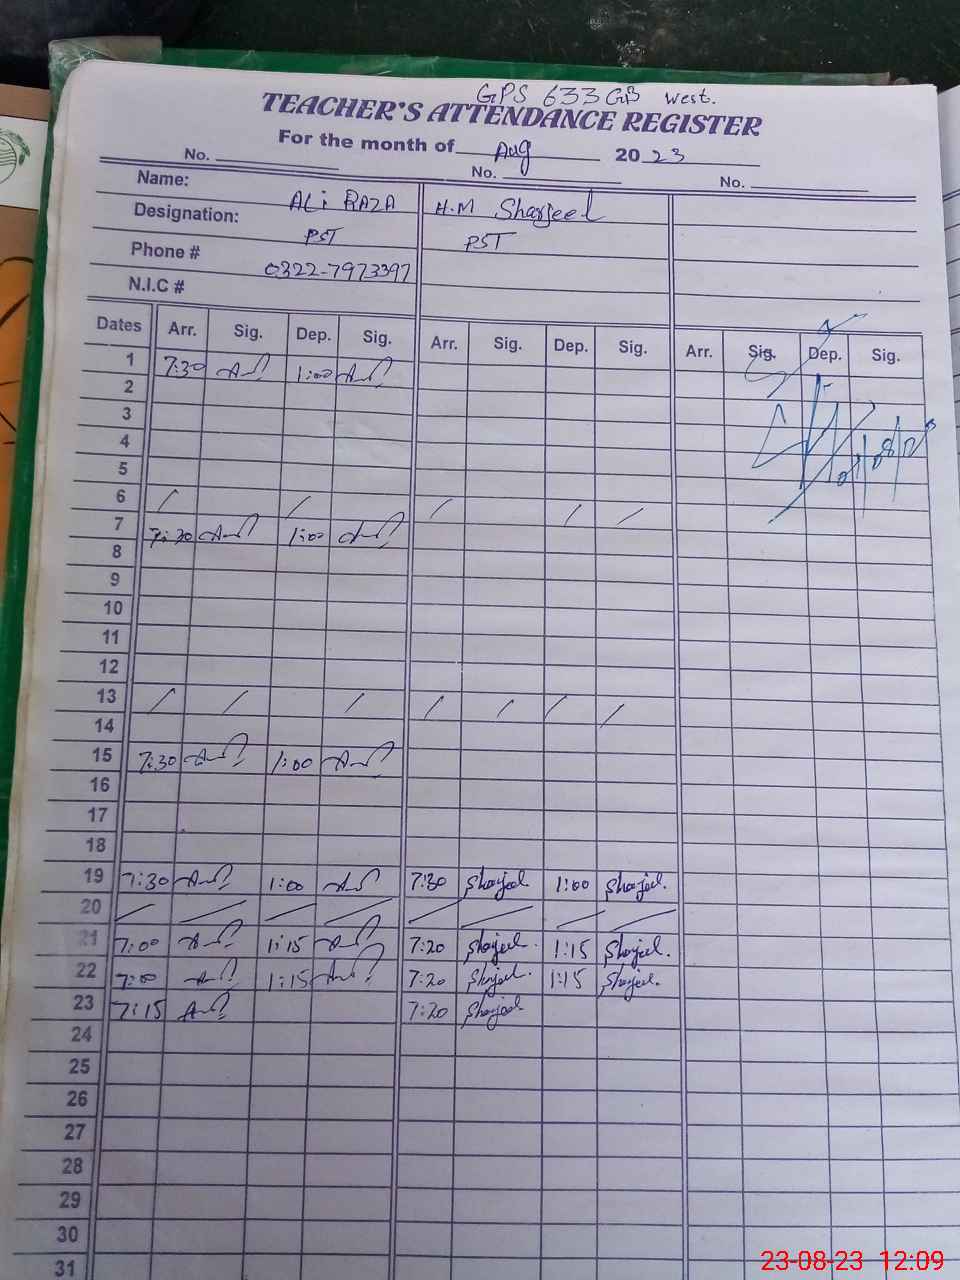 GPS 633 GB West.
TEACHER'S ATTENDANCE REGISTER
For the month of Aug 2023
No. No. No.
Name: ALi RAZA H.M Sharjeel
Designation: PST PST
Phone # 0322-7973397
N.I.C #
Dates Arr. Sig. Dep. Sig. Arr. Sig. Dep. Sig. Arr. Sig. Dep. Sig.
1 7:30 1:00
2
3
4
5
6 / / / / /
7 7:30 1:00
8
9
10
11
12
13 / / / / / / /
14
15 7:30 1:00
16
17
18
19 7:30 1:00 7:30 Sharjeel 1:00 Sharjeel.
20 / / / / / / / /
21 7:00 1:15 7:20 Sharjeel. 1:15 Sharjeel.
22 7:00 1:15 7:20 Sharjeel. 1:15 Sharjeel.
23 7:15 7:20 Sharjeel
24
25
26
27
28
29
30
31
23-08-23 12:09